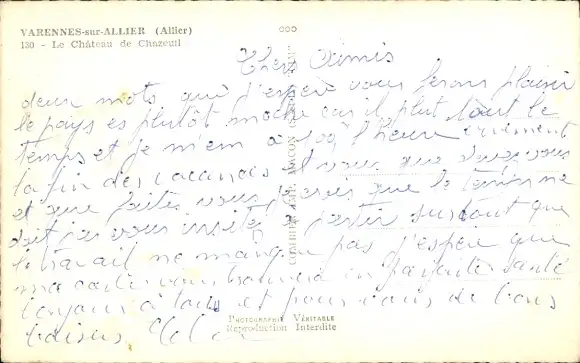 VARENNES-sur-ALLIER (Allier)
130 - Le Château de Chazeuil
Chers Amis
deux mots que j'espère vous ferons plaisir
le pays es plutôt moche car il plut tout le
temps et je m'en à 100 l'heure vivement
la fin des vacances et vous que devez vous
et que faites vous je crois que le temps ne
doit pas vous invité à partir surtout que
le travail ne manque pas j'espère que
ma carte vous trouvera en parfaite santé
toujours à tous et pour vous de bons
baisers
PHOTOGRAPHIE VÉRITABLE
Reproduction Interdite